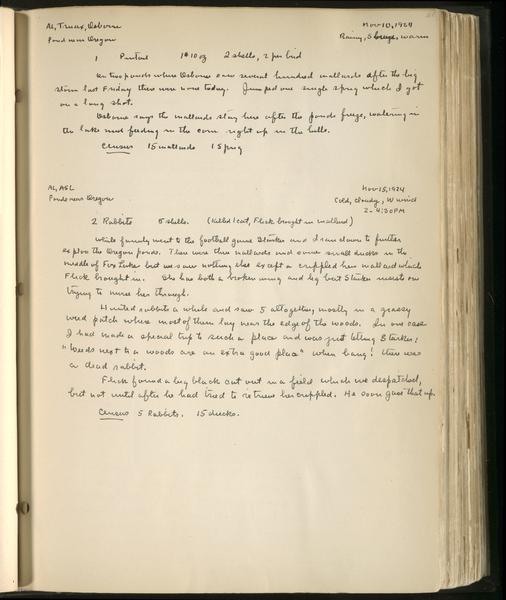 AL, Truax, Osborne Nov 10, 1924
Pond near Oregon Rainy, S breeze, warm
1 Pintail 1# 10 oz 2 shells, 2 per bird
On two ponds where Osborne saw several hundred mallards after the big
storm last Friday there were none today. Jumped one single sprig which I got
on a long shot.
Osborne says the mallards stay here after the ponds freeze, watering in
the lake and feeding in the corn right up in the hills.
Census 15 mallards 1 Sprig
AL, ASL Nov 15, 1924
Ponds near Oregon Cold, cloudy, W wind
2 - 4:30 PM
2 Rabbits 5 shells. (Killed 1 cat, Flick brought in mallard)
While family went to the football game Starker and I ran down to further
explore the Oregon ponds. There were three mallards and some small ducks in the
middle of Fox Lake but we saw nothing else except a crippled hen mallard which
Flick brought in. She has both a broken wing and leg but Starker insists on
trying to nurse her through.
Hunted rabbits a while and saw 5 altogether, mostly in a grassy
weed patch where most of them lay near the edge of the woods. In one case
I had made a special trip to such a place and was just telling Starker:
"Weeds next to a woods are an extra good place" when bang! there was
a dead rabbit.
Flick found a big black cat out in a field which we despatched,
but not until after he had tried to retrieve her crippled. He soon gave that up.
Census 5 Rabbits. 15 ducks.